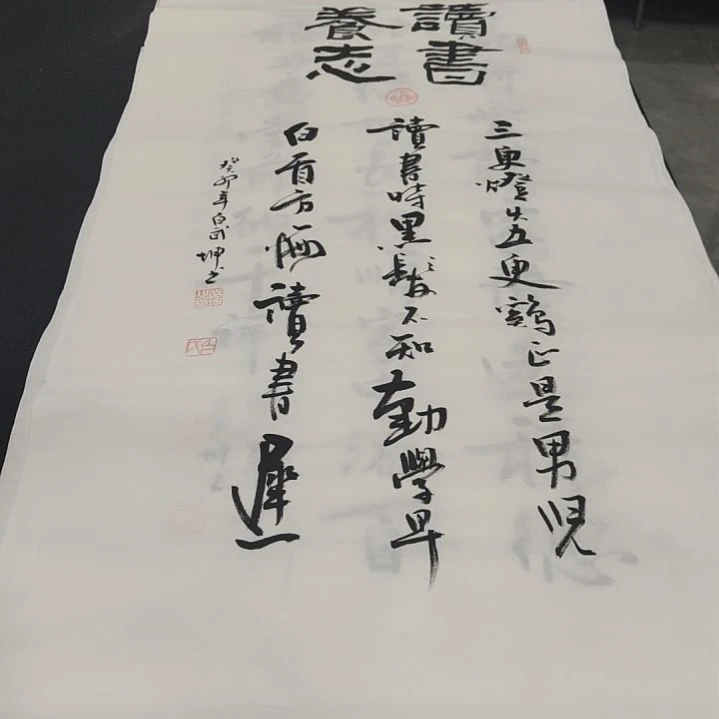 讀書
養志
三更燈火五更鷄正是男児
讀書時黑髮不知勤學早
白首方悔讀書遲
癸卯年白武坤书